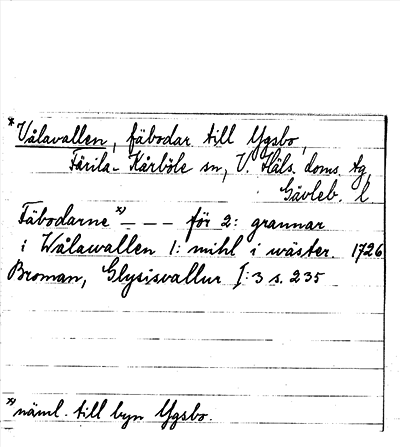 * Vålavallen, fäbodar till Ygsbo,
Färila-Kårböle sn, V. Häls. doms. tg
Gävleb. l
Fäbodarne x) – – – för 2: grannar
i Wålawallen 1: mihl i wäster. 1726
Broman, Glysisvallur I:3 s. 235
x) näml. till byn Ygsbo.